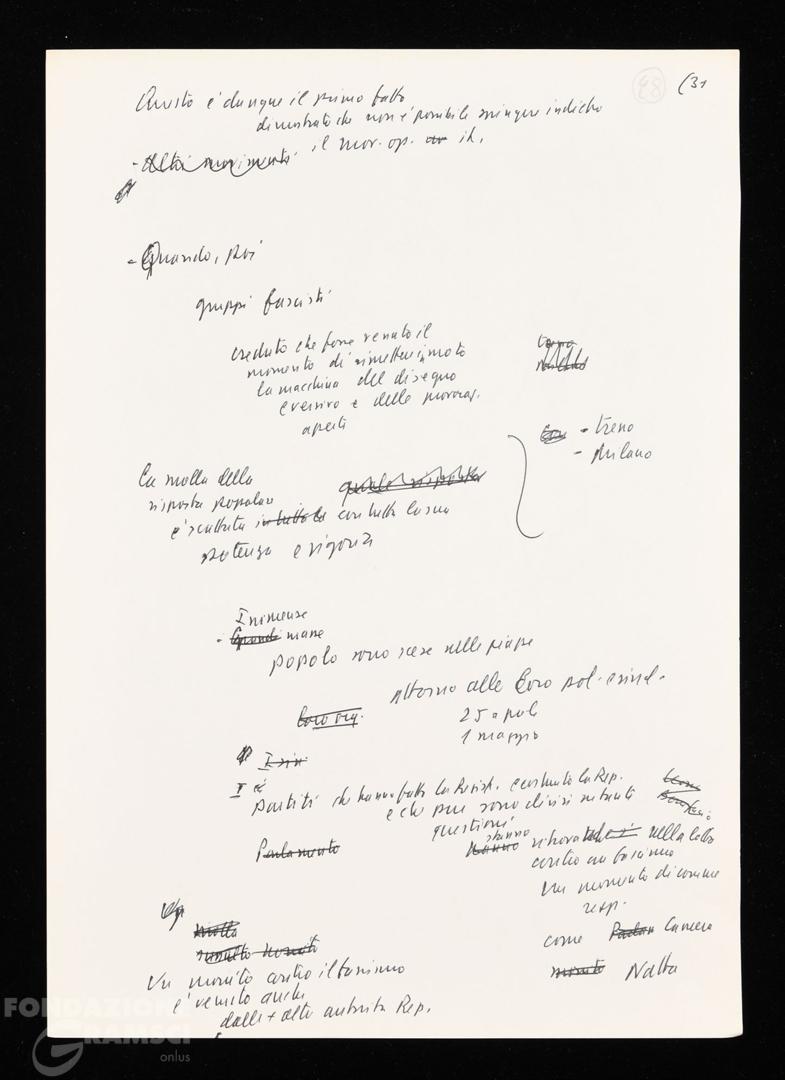 48 (31
Questo è dunque il primo fatto
dimostrato che non è possibile spingere indietro
il mov. op. it.
- Altri movimenti
- Quando, poi
gruppi fascisti
creduto che fosse venuto il
momento di rimettere in moto
la macchina del disegno
eversivo e delle provocaz.
aperti
- treno
- Milano
La molla della
risposta popolare
è scattata in tutta la con tutta la sua
potenza e vigoria
Immense
- Grandi masse
popolo sono scese nelle piazze
attorno alle loro pol. e sind.
Loro org.
25 aprile
1 maggio
I
partiti che hanno fatto la Resist. e costruito la Rep.
e che pure sono divisi su tante
questioni
stanno
Parlamento
hanno ritrova nella lotta
contro un fascismo
un momento di comune
resp.
come Camera
Natta
Un monito contro il fascismo
è venuto anche
dalle + alte autorità Rep.
FONDAZIONE
GRAMSCI
onlus